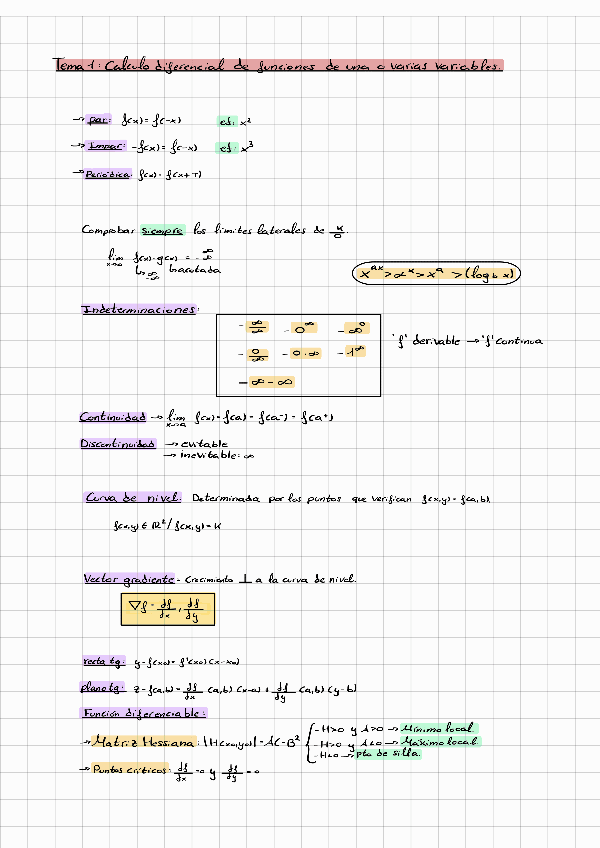 Tema 1: Calculo diferencial de funciones de una o varias variables.
→ par: f(x) = f(-x) ej: x²
→ Impar: -f(x) = f(-x) ej: x³
→ Periódica: f(x) = f(x+T)
Comprobar siempre los limites laterales de K/0
lim x→∞ f(x)·g(x) = ∞
↳ acotada
x^ax > a^x > x^a > (log b x)
Indeterminaciones:
- ∞/∞ - 0^∞ - ∞^0
- 0/0 - 0·∞ - 1^∞
- ∞-∞
'f' derivable → 'f' continua
Continuidad → lim x→a f(x) = f(a) = f(a⁻) = f(a⁺)
Discontinuidad → evitable
→ inevitable: ∞
Curva de nivel. Determinada por los puntos que verifican f(x,y) = f(a,b).
f(x,y) ∈ ℝ² / f(x,y) = K
Vector gradiente - Crecimiento ⊥ a la curva de nivel.
∇f = df/dx , df/dy
recta tg: y-f(x0) = f'(x0) (x-x0)
plano tg: z-f(a,b) = df/dx (a,b) (x-a) + df/dy (a,b) (y-b)
Función diferenciable:
→ Matriz Hessiana: |H(x0,y0)| = AC-B²
- H>0 y A>0 → Mínimo local
- H>0 y A<0 → Máximo local
- H<0 → pto de silla.
→ Puntos críticos: df/dx = 0 y df/dy = 0